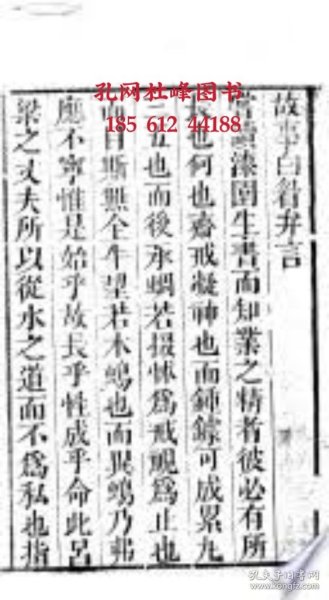 孔网杜峰图书
185 612 44188
故事白眉弁言
讀漆園生書而知業之精者彼必有所
也何也齋戒凝神也而鍾鐻可成累九
二五也而後承蜩若掇怵爲戒視爲止也
目斯無全牛望若木鷄也而異鷄乃弗
應不寧惟是始乎故長乎性成乎命此呂
梁之丈夫所以從水之道而不爲私也指
孔夫子旧书网